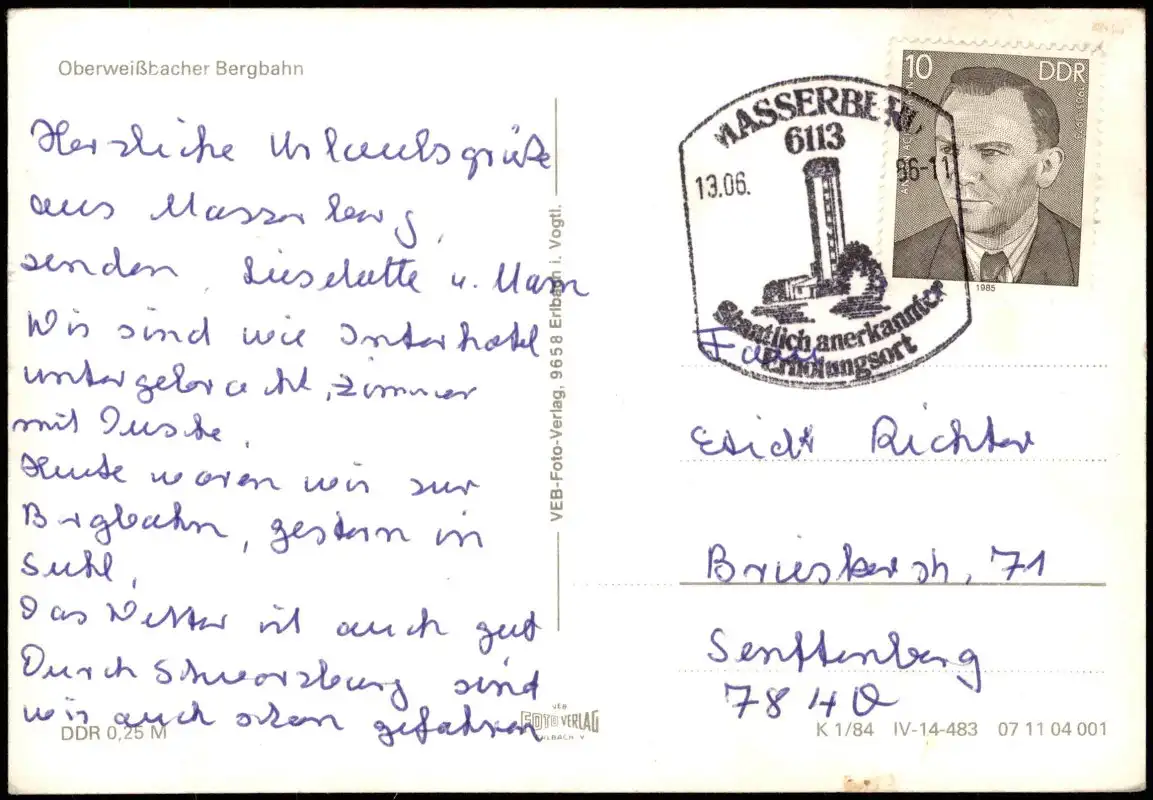 Oberweißbacher Bergbahn
Herzliche Urlaubsgrüße
aus Masserberg,
senden Lieselotte u. Mann
Wir sind wie Interhotel
untergebracht, Zimmer
mit Dusche.
Heute waren wir zur
Bergbahn, gestern in
Suhl,
Das Wetter ist auch gut
Durch Schwarzburg sind
wir auch schon gefahren
DDR 0,25 M
VEB-Foto-Verlag, 9658 Erlbach i. Vogtl.
VEB
FOTO VERLAG
ERLBACH V
MASSERBERG
6113
13.06.
86-11
Staatlich anerkannter
Erholungsort
10 DDR
1985
Fam.
Erich Richter
Briesker str, 71
Senftenberg
7840
K 1/84 IV-14-483 07 11 04 001